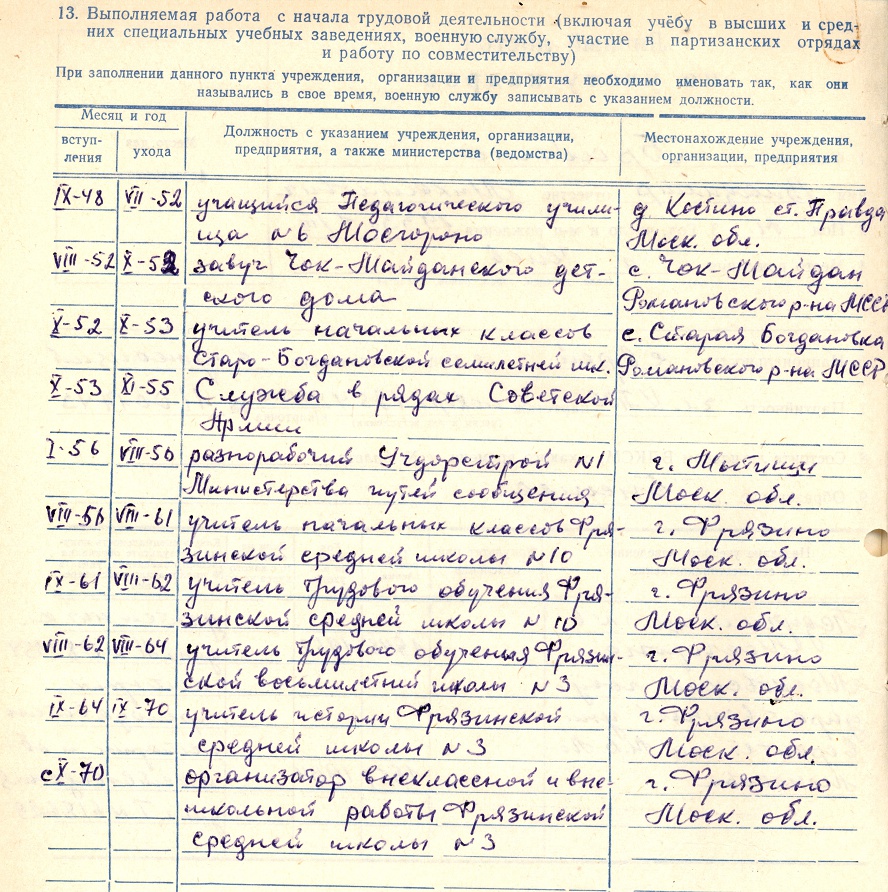 13. Выполняемая работа с начала трудовой деятельности (включая учёбу в высших и сред-
них специальных учебных заведениях, военную службу, участие в партизанских отрядах
и работу по совместительству)
При заполнении данного пункта учреждения, организации и предприятия необходимо именовать так, как они
назывались в свое время, военную службу записывать с указанием должности.
Месяц и год
вступ-
ления
ухода
Должность с указанием учреждения, организации,
предприятия, а также министерства (ведомства)
Местонахождение учреждения,
организации, предприятия
IX-48 VII-52 учащийся Педагогического учили- д. Костино ст. Правда
ща №6 Мосгороно Моск. обл.
VIII-52 X-52 завуч Чок-Майданского дет- с. Чок-Майдан
ского дома Романовского р-на МССР
X-52 X-53 учитель начальных классов с. Старая Богдановка
Старо-Богдановской семилетней шк. Романовского р-на МССР
X-53 XI-55 Служба в рядах Советской
Армии
I-56 VIII-56 разнорабочий Учдорстрой №1 г. Мытищи
Министерства путей сообщения Моск. обл.
VIII-56 VIII-61 учитель начальных классов Фря- г. Фрязино
зинской средней школы №10 Моск. обл.
IX-61 VIII-62 учитель трудового обучения Фря- г. Фрязино
зинской средней школы №10 Моск. обл.
VIII-62 VIII-64 учитель трудового обучения Фрязин- г. Фрязино
ской восьмилетний школы №3 Моск. обл.
IX-64 IX-70 учитель истории Фрязинской г. Фрязино
средней школы №3 Моск. обл.
с X-70 организатор внеклассной и вне- г. Фрязино
школьной работы Фрязинской Моск. обл.
средней школы №3